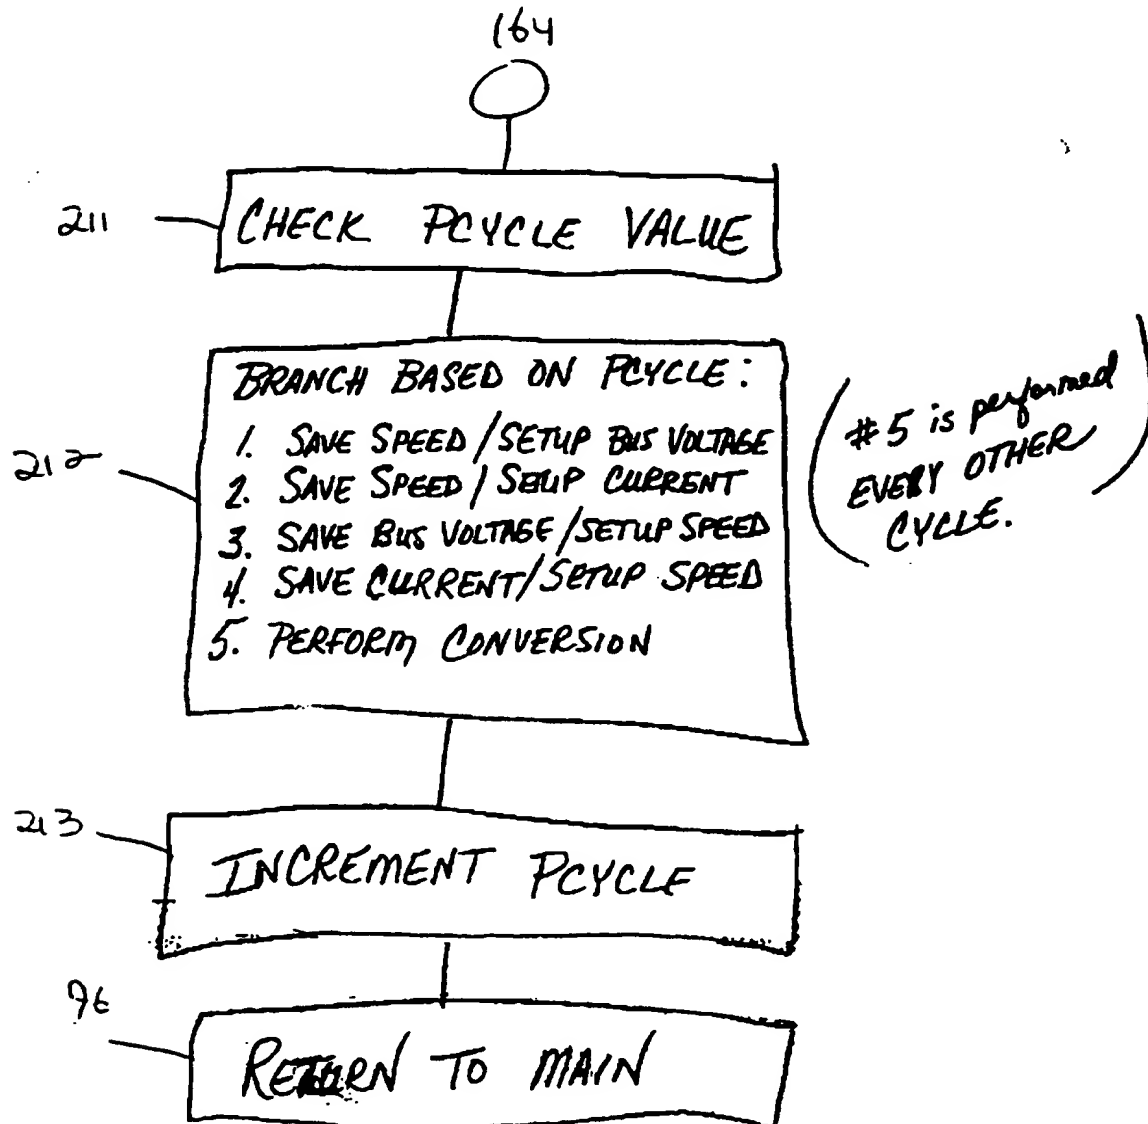 164
211
CHECK PCYCLE VALUE
212
BRANCH BASED ON PCYCLE:
1. SAVE SPEED/SETUP BUS VOLTAGE
2. SAVE SPEED/SETUP CURRENT
3. SAVE BUS VOLTAGE/SETUP SPEED
4. SAVE CURRENT/SETUP SPEED
5. PERFORM CONVERSION
(#5 is performed
EVERY OTHER
CYCLE.)
213
INCREMENT PCYCLE
RETURN TO MAIN